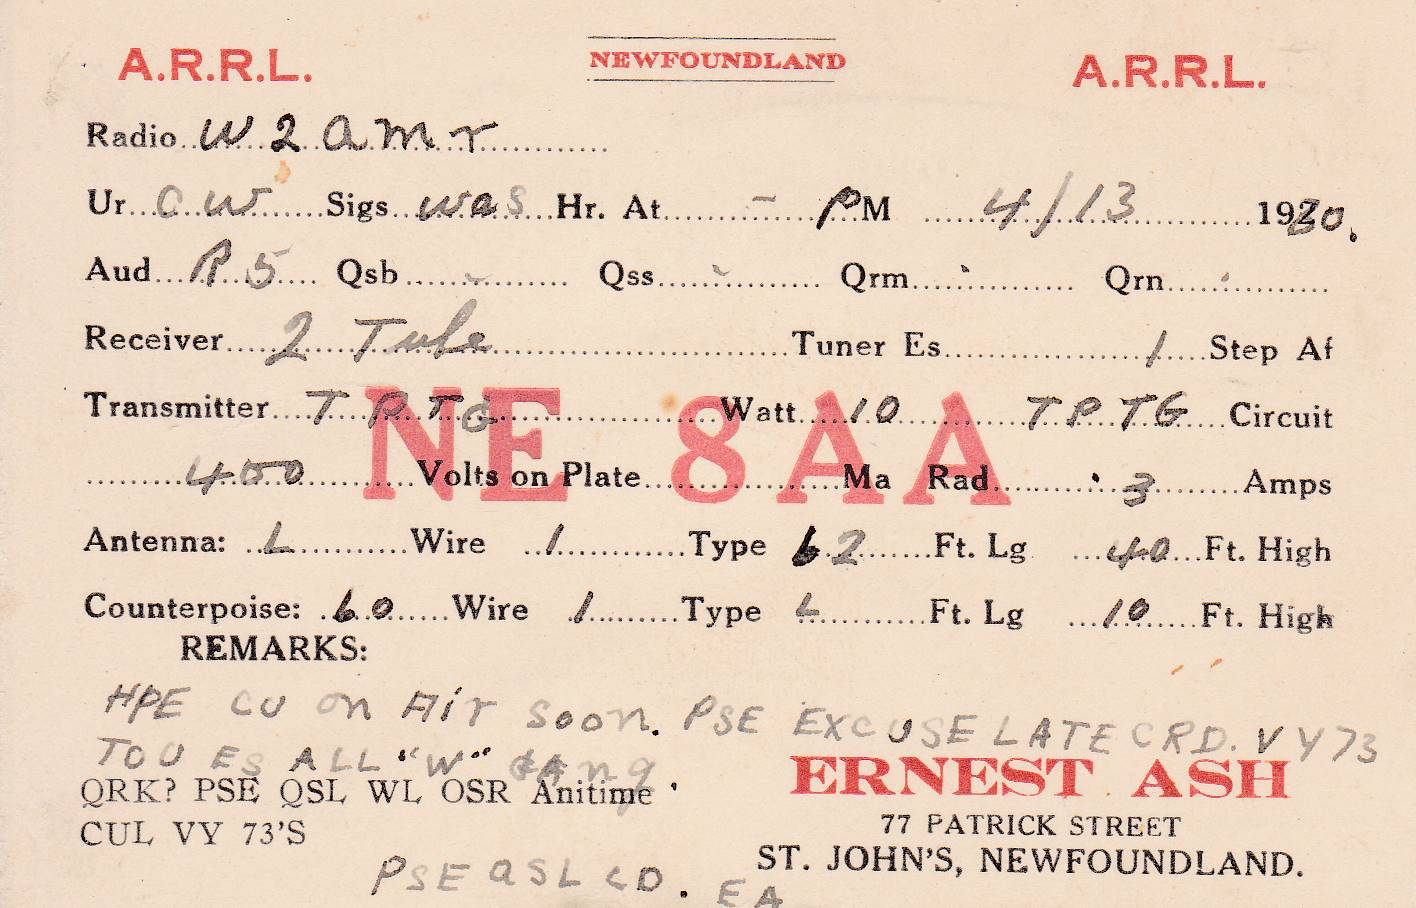 A.R.R.L. NEWFOUNDLAND A.R.R.L.
Radio W2amr
Ur CW Sigs was Hr. At - PM 4/13 1930.
Aud R5 Qsb - Qss - Qrm - Qrn -
Receiver 2 Tube Tuner Es 1 Step Af
Transmitter TPTG Watt 10 TPTG Circuit
NE 8AA
400 Volts on Plate Ma Rad .3 Amps
Antenna: L Wire 1 Type 62 Ft. Lg 40 Ft. High
Counterpoise: 60 Wire 1 Type L Ft. Lg 10 Ft. High
REMARKS:
HPE CU on Air soon. PSE EXCUSE LATE CRD. VY 73
TO U ES ALL "W" Gang
QRK? PSE QSL WL OSR Anitime
CUL VY 73'S
ERNEST ASH
77 PATRICK STREET
ST. JOHN'S, NEWFOUNDLAND.
PSE QSL CD. EA